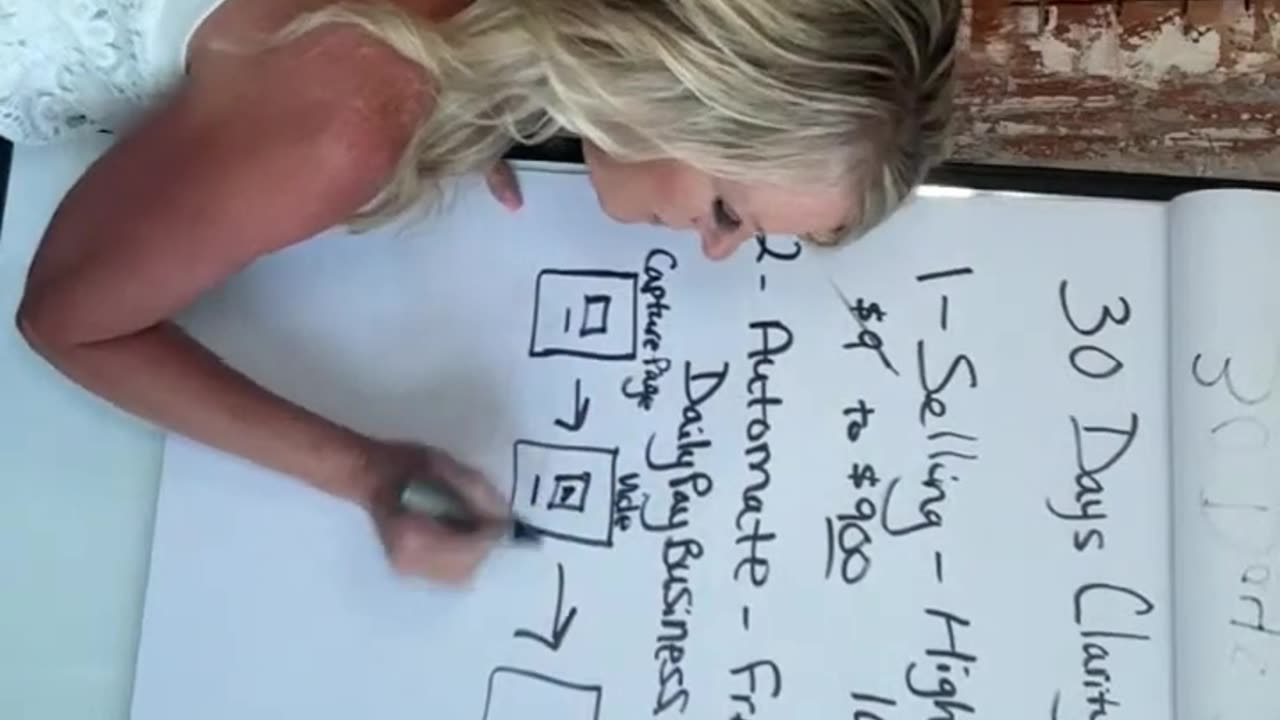 30 Days Clarity
1 - Selling - High
$9 to $900
2 - Automate -
Daily Pay Business
Capture Page
Video
30